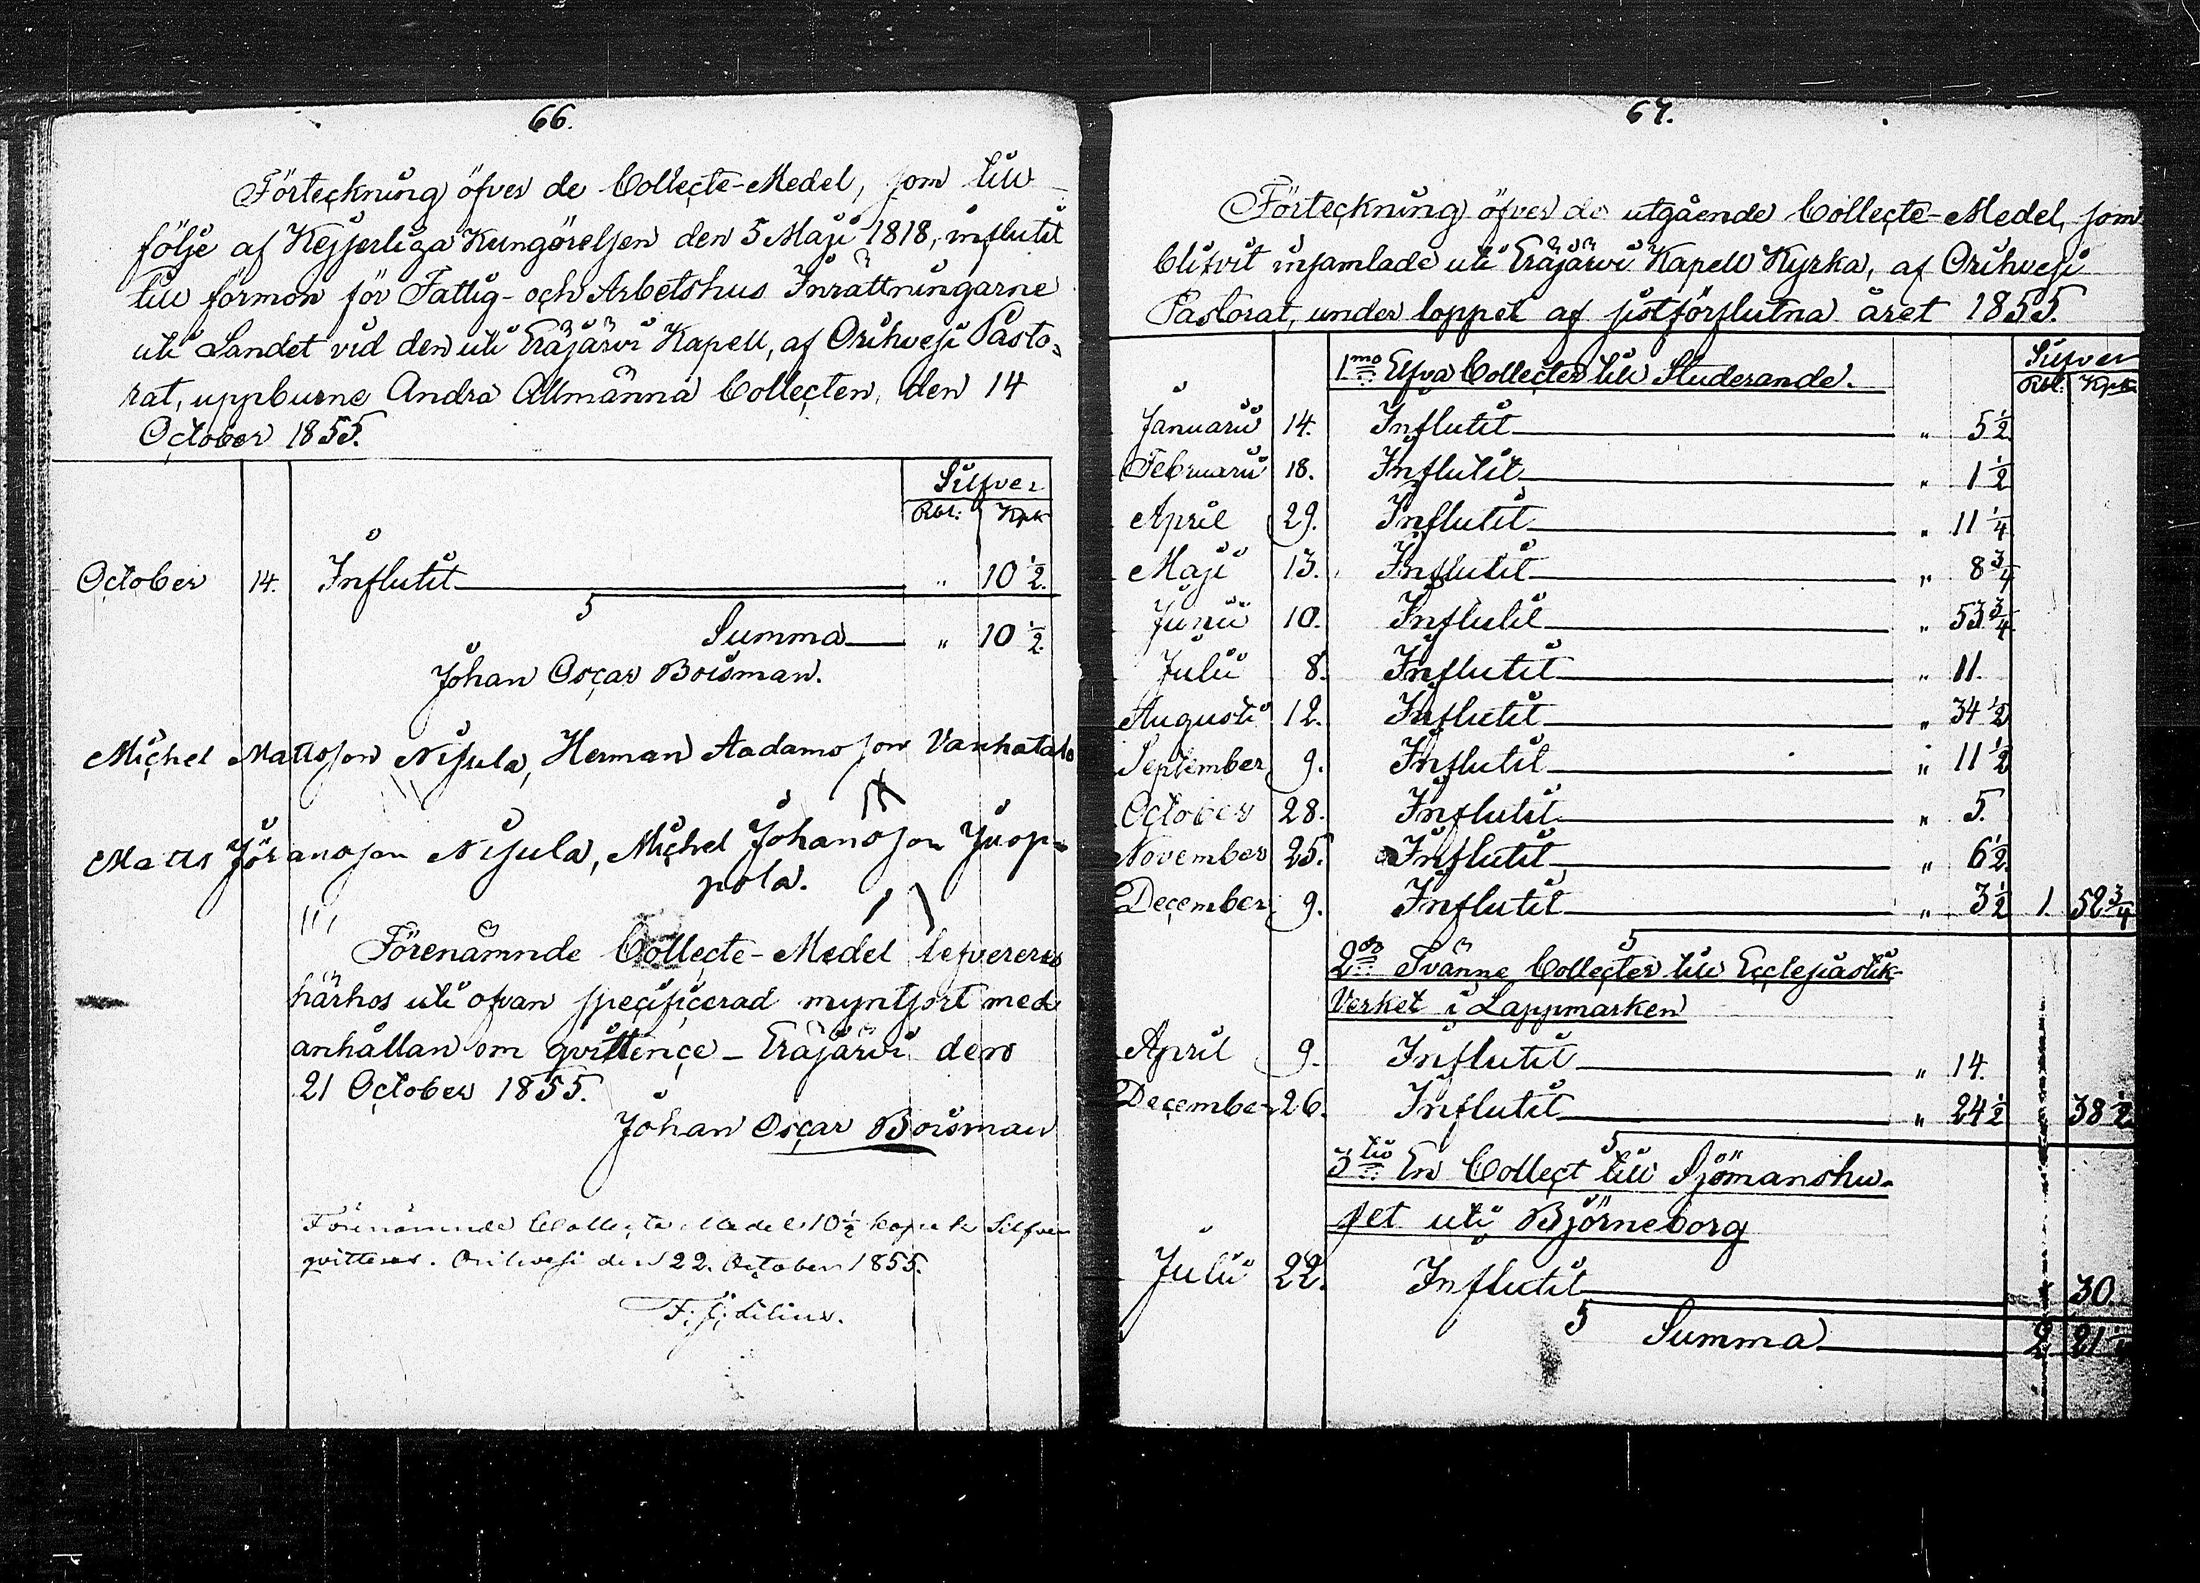 66.
Förteckning öfver de Collecte-Medel, som till
följe af Kejserliga Kungörelsen den 5 Maji 1818, influtit
till förmon för Fattig- och Arbetshus Inrättningarne
uti Landet vid den uti Eräjärvi Kapell, af Orihvesi Pasto-
rat, uppburne Andra Allmänna Collecten, den 14
October 1855.
Silfver
Rbl: Kpk
October 14. Influtit " 10 1/2.
Summa " 10 1/2.
Johan Oscar Boisman.
Michel Mattsson Nisula, Herman Aadamsson Vanhatalo
Matts Jöransson Nisula, Michel Johansson Juop-
pola.
Förenämnde Collecte-Medel lefvereras
härhos uti ofvan specificerad myntsort med
anhållan om qvittence - Eräjärvi den
21 October 1855.
Johan Oscar Boisman
Förenämnde Collecte Medel 10 1/2 kopek Silfver
qvitteras. Orihvesi den 22. October 1855.
67.
Förteckning öfver de utgående Collecte-Medel, som
blifvit insamlade uti Eräjärvi Kapell Kyrka, af Orihvesi
Pastorat, under loppet af sistförflutna året 1855.
Silfver
Rbl: Kpk
1mo Elfva Collecter till Studerande.
Januarii 14. Influtit " 5 1/2
Februarii 18. Influtit " 1 1/2
April 29. Influtit " 11 1/4
Maji 13. Influtit " 8 3/4
Junii 10. Influtit " 53 3/4
Julii 8. Influtit " 11.
Augusti 12. Influtit " 34 1/2
September 9. Influtit " 11 1/2
October 28. Influtit " 5.
November 25. Influtit " 6 1/2
December 9. Influtit " 3 1/2 1. 52 3/4
2do Tvänne Collecter till Ecclesiastik-
Verket i Lappmarken
April 9. Influtit " 14.
December 26. Influtit " 24 1/2 38 1/2
3tio En Collect till Sjömanshu-
set uti Björneborg
Julii 22. Influtit 30.
Summa 2 21 1/4